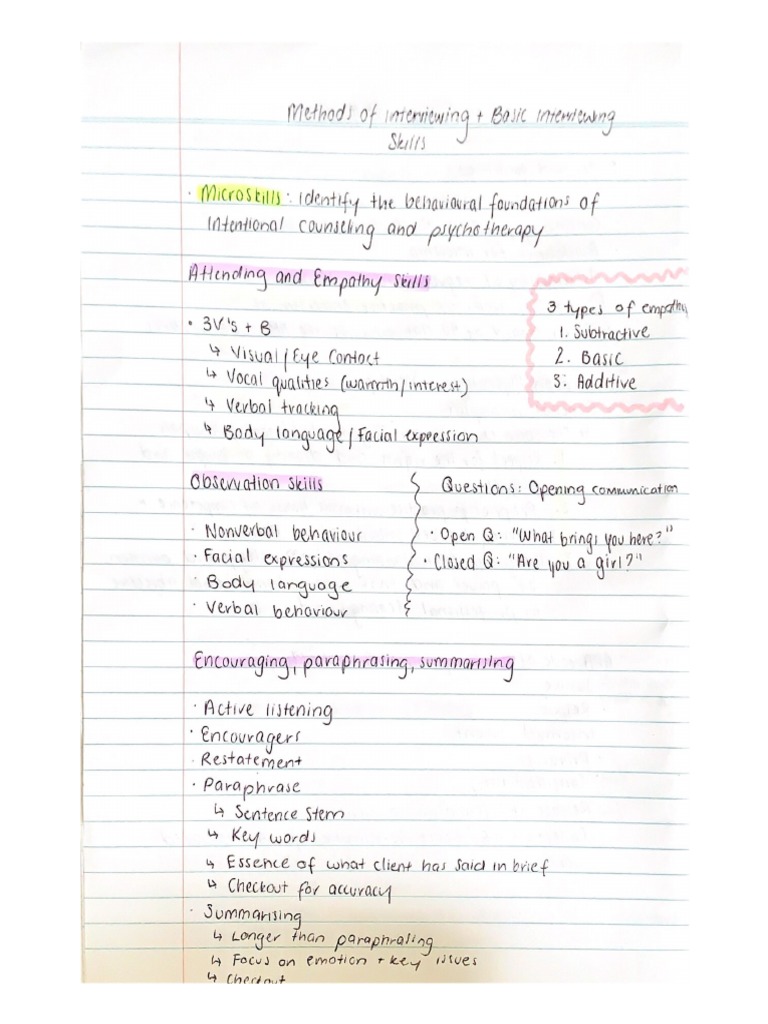 Methods of interviewing + Basic interviewing
Skills
· Microskills: identify the behavioural foundations of
intentional counseling and psychotherapy
Attending and Empathy skills
3 types of empathy
1. Subtractive
2. Basic
3. Additive
• 3V's + B
↳ Visual/Eye contact
↳ Vocal qualities (warmth/interest)
↳ Verbal tracking
↳ Body language/Facial expression
Observation skills
· Nonverbal behaviour
· Facial expressions
· Body language
· Verbal behaviour
Questions: Opening communication
· Open Q: "What brings you here?"
· Closed Q: "Are you a girl?"
Encouraging, paraphrasing, summarising
· Active listening
· Encouragers
· Restatement
· Paraphrase
↳ Sentence stem
↳ Key words
↳ Essence of what client has said in brief
↳ Checkout for accuracy
· Summarising
↳ Longer than paraphrasing
↳ Focus on emotion + key issues
↳ Checkout